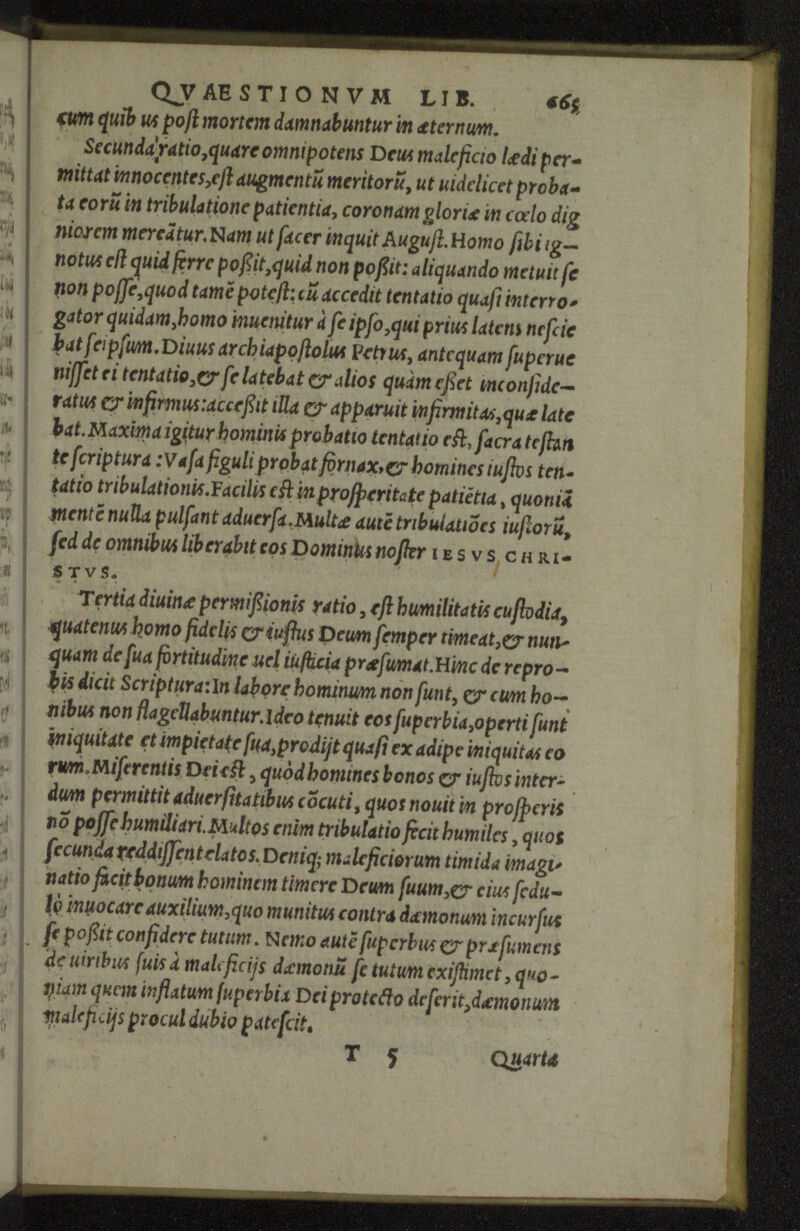 QVAESTIONVM LIB. 465
cum quib us post mortem damnabuntur in æternum.
Secunda ratio, quare omnipotens Deus maleficio lædi per-
mittat innocentes, est augmentū meritorū, ut uidelicet proba-
ta eorū in tribulatione patientia, coronam gloriæ in cœlo dig
niorem mereātur. Nam ut sacer inquit August. Homo sibi ig-
notus est quid ferre possit, quid non possit: aliquando metuit se
non posse, quod tamē potest: cū accedit tentatio quasi interro-
gator quidam, homo inuenitur à se ipso, qui prius latens nescie
bat seipsum. Diuus archiapostolus Petrus, antequam superue
nisset ei tentatio, & se latebat & alios quàm esset inconside-
ratus & infirmus: accessit illa & apparuit infirmitas, quæ late
bat. Maxima igitur hominis probatio tentatio est, sacra testan
te scriptura: Vasa figuli probat fornax, & homines iustos ten-
tatio tribulationis. Facilis est in prosperitate patiētia, quoniā
mentē nulla pulsant aduersa. Multæ autē tribulatiōes iustorū,
sed de omnibus liberabit eos Dominus noster IESVS CHRI-
STVS.
Tertia diuinæ permissionis ratio, est humilitatis custodia,
quatenus homo fidelis & iustus Deum semper timeat, & nun-
quam de sua fortitudine uel iusticia præsumat. Hinc de repro-
bis dicit Scriptura: In labore hominum non sunt, & cum ho-
nibus non flagellabuntur. Ideo tenuit eos superbia, operti sunt
iniquitate et impietate sua, prodijt quasi ex adipe iniquitas eo
rum. Miserentis Dei est, quòd homines bonos & iustos inter-
dum permittit aduersitatibus cōcuti, quos nouit in prosperis
nō posse humiliari. Multos enim tribulatio fecit humiles, quos
secunda reddissent elatos. Deniq; maleficiorum timida imagi-
natio facit bonum hominem timere Deum suum, & eius sedu-
lò inuocare auxilium, quo munitus contra dæmonum incursus
se possit confidere tutum. Nemo autē superbus & præsumens
de uiribus suis à maleficijs dæmonū se tutum existimet, quo-
niam quem inflatum superbia Dei protectio deserit, dæmonum
maleficijs procul dubio patescit.
T 5 Quarta